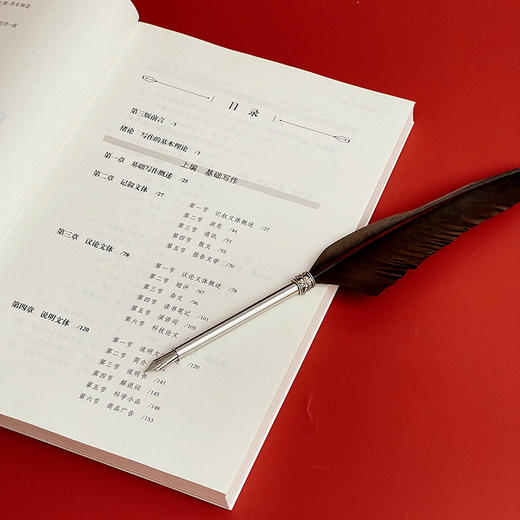 目 录
第三版前言 /1
绪论 写作的基本理论 /1
上编 基础写作
第一章 基础写作概述 /25
第二章 记叙文体 /27
第一节 记叙文体概述 /27
第二节 消息 /44
第三节 通讯 /51
第四节 散文 /55
第五节 报告文学 /70
第三章 议论文体 /78
第一节 议论文体概述 /78
第二节 短评 /87
第三节 杂文 /94
第四节 读书笔记 /101
第五节 演讲词 /105
第六节 科技论文
第四章 说明文体 /120
第一节 说明文 /120
第二节 简介
第三节 说明书 /141
第四节 解说词 /145
第五节 科学小品 /148
第六节 商品广告 /153